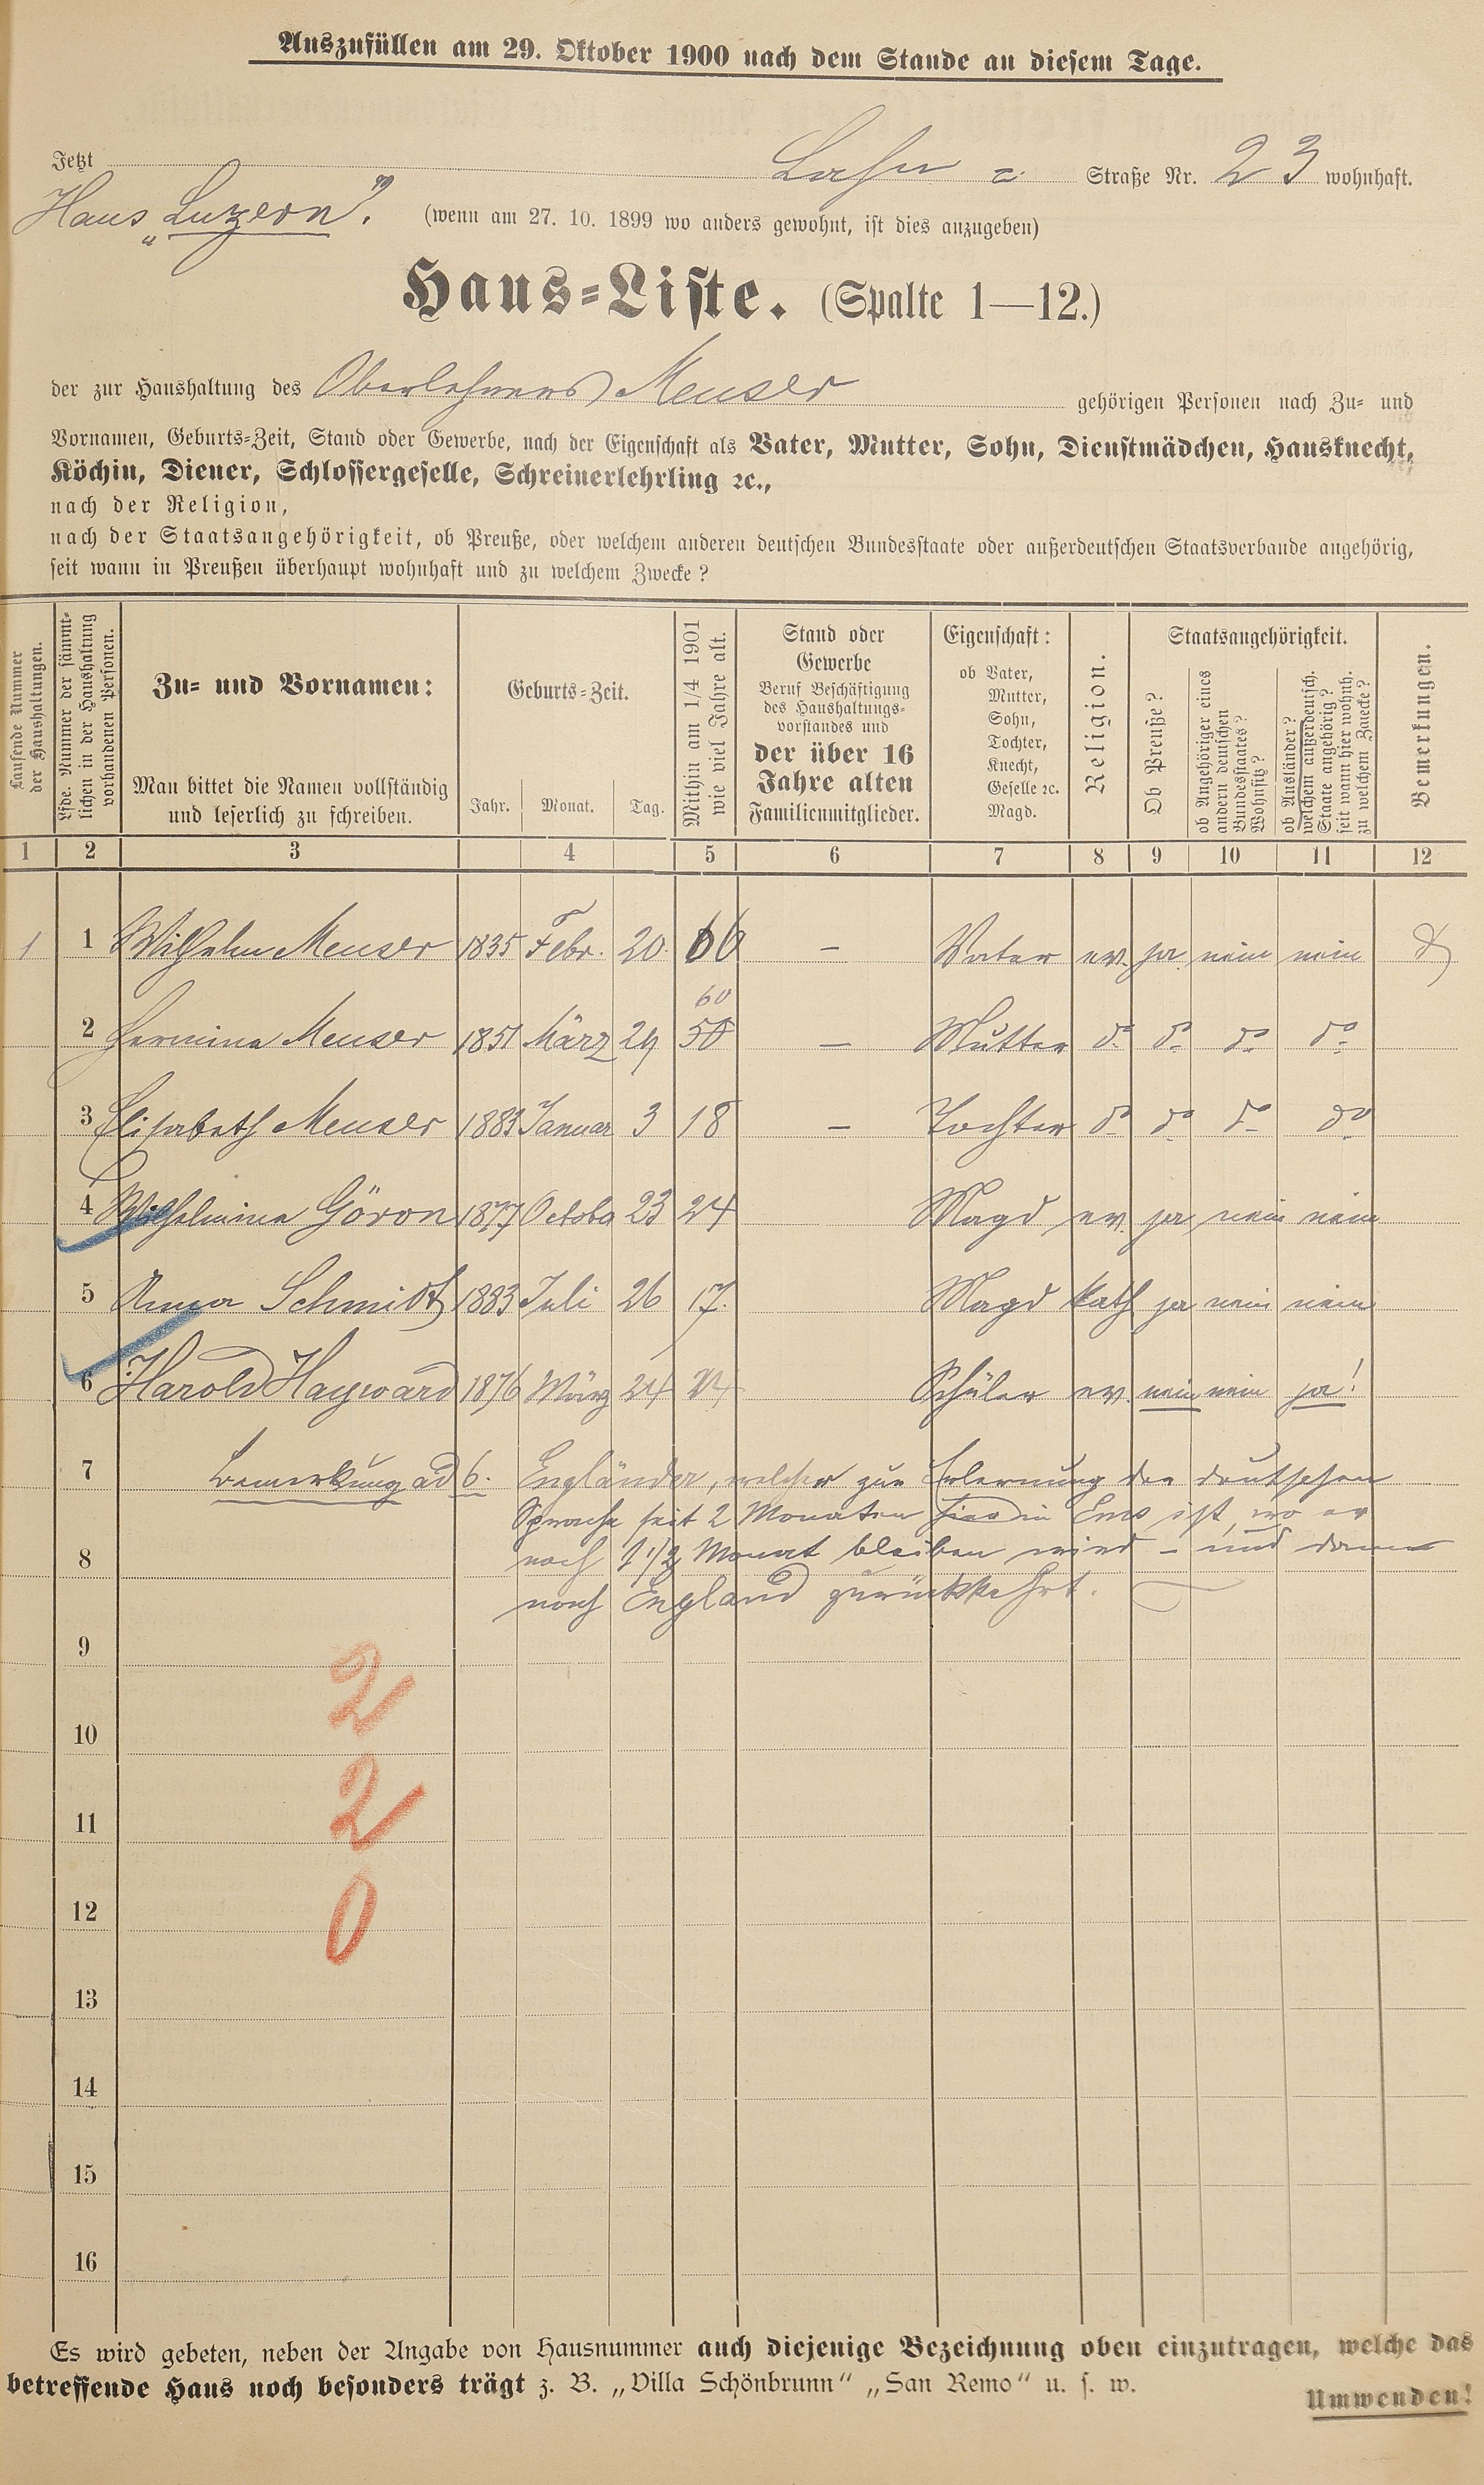 Auszufüllen am 29. Oktober 1900 nach dem Stande an diesem Tage.
Jetzt Lahn = Straße Nr. 23 wohnhaft.
Haus „Luzern". (wenn am 27. 10. 1899 wo anders gewohnt, ist dies anzugeben)
Haus-Liste. (Spalte 1—12.)
der zur Haushaltung des Oberlehrers Menser gehörigen Personen nach Zu- und
Vornamen, Geburts-Zeit, Stand oder Gewerbe, nach der Eigenschaft als Vater, Mutter, Sohn, Dienstmädchen, Hausknecht,
Köchin, Diener, Schlossergeselle, Schreinerlehrling ꝛc.,
nach der Religion,
nach der Staatsangehörigkeit, ob Preuße, oder welchem anderen deutschen Bundesstaate oder außerdeutschen Staatsverbande angehörig,
seit wann in Preußen überhaupt wohnhaft und zu welchem Zwecke?
Laufende Nummer
der Haushaltungen.
Lfde. Nummer der sämmt-
lichen in der Haushaltung
vorhandenen Personen.
Zu- und Vornamen:
Man bittet die Namen vollständig
und leserlich zu schreiben.
Geburts-Zeit.
Jahr. Monat. Tag.
Mithin am 1/4 1901
wie viel Jahre alt.
Stand oder
Gewerbe
Beruf Beschäftigung
des Haushaltungs-
vorstandes und
der über 16
Jahre alten
Familienmitglieder.
Eigenschaft:
ob Vater,
Mutter,
Sohn,
Tochter,
Knecht,
Geselle ꝛc.
Magd.
Religion.
Staatsangehörigkeit.
Ob Preuße?
ob Angehöriger eines
andern deutschen
Bundesstaates?
Wohnsitz?
ob Ausländer?
welchem außerdeutsch.
Staate angehörig?
seit wann hier wohnh.
zu welchem Zwecke?
Bemerkungen.
1 2 3 4 5 6 7 8 9 10 11 12
1 1 Wilhelm Menser 1835 Febr. 20. 66 — Vater ev. ja nein nein
60
2 Hermine Menser 1851 März 29 50 — Mutter do do do do
3 Elisabeth Menser 1883 Januar 3 18 — Tochter do do do do
4 Wilhelmine Göron 1877 Octobe 23 24 Magd ev. ja nein nein
5 Anna Schmidt 1883 Juli 26 17. Magd kath ja nein nein
6 Harold Hayward 1876 März 24 24 Schüler ev. nein nein ja!
7 Bemerkung ad 6. Engländer, welcher zur Erlernung der deutschen
Sprache seit 2 Monaten hier in Ems ist, wo er
8 noch 1 1/2 Monat bleiben wird – und dann
nach England zurückkehrt.
9
2
10
2
11
12
0
13
14
15
16
Es wird gebeten, neben der Angabe von Hausnummer auch diejenige Bezeichnung oben einzutragen, welche das
betreffende Haus noch besonders trägt z. B. „Villa Schönbrunn" „San Remo" u. s. w.
Umwenden!